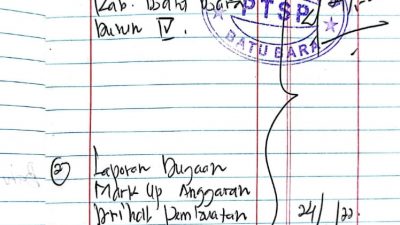 Kab. Batu Bara
Dusun IV.
PTSP
BATU BARA
② Laporan Dugaan
Mark Up Anggaran
prihal pembuatan
24/